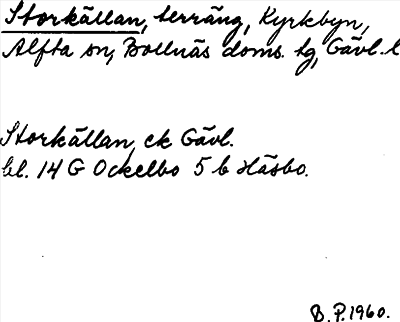 Storkällan, terräng, Kyrkbyn,
Alfta sn, Bollnäs doms. tg, Gävl. l
Storkällan, ek Gävl.
bl. 14 G Ockelbo 5 b Häsbo.
B.P. 1960.